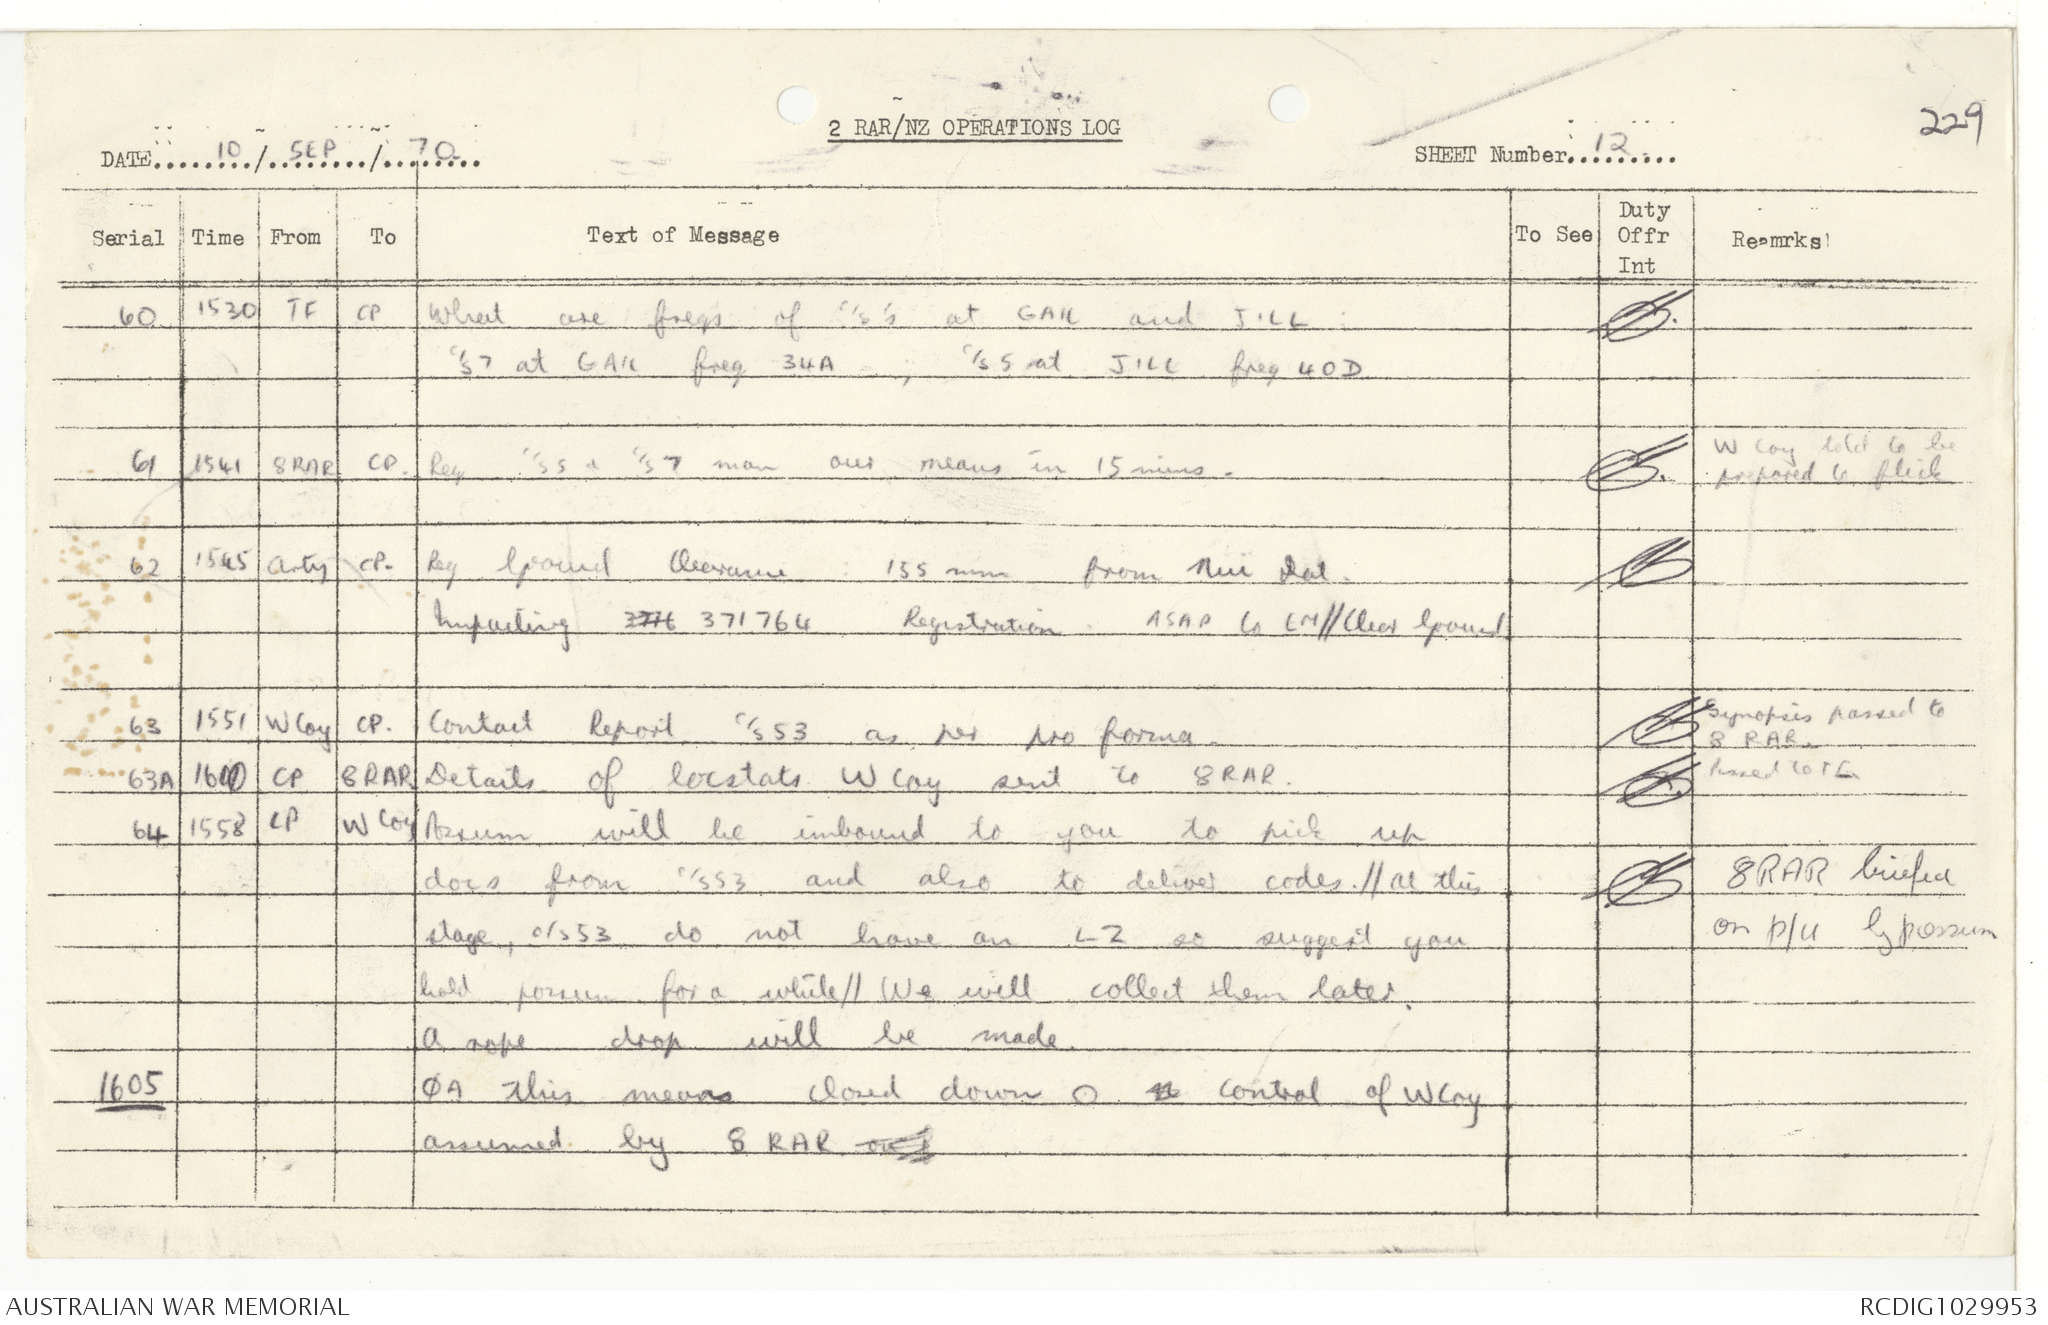 229
2 RAR/NZ OPERATIONS LOG
DATE.....10../..SEP../..70.....
SHEET Number..12......
Serial Time From To Text of Message To See Duty Offr Int Reamrks
60 1530 TF CP What are freqs of c/s's at GAIL and JILL :
c/s 7 at GAIL freq 34A , c/s 5 at JILL freq 40D
61 1541 8RAR CP. Req c/s 5 & c/s 7 man our means in 15 mins. W Coy told to be
prepared to flick
62 1545 Arty CP. Req Ground Clearance : 155 mm from Nui Dat.
Impacting 371764 Registration ASAP to LM//Clear Ground
63 1551 W Coy CP. Contact Report c/s 53 as per pro forma. Synopsis passed to
8 RAR.
63A 1600 CP 8RAR Details of locstats W Coy sent to 8RAR. Passed to TF
64 1558 CP W Coy Possum will be inbound to you to pick up
docs from c/s53 and also to deliver codes.//at this 8RAR briefed
stage, c/s53 do not have an LZ so suggest you on p/u by possum
hold possum for a while// We will collect them later.
A rope drop will be made.
1605 ØA this means closed down O control of W Coy
assumed by 8 RAR
AUSTRALIAN WAR MEMORIAL
RCDIG1029953